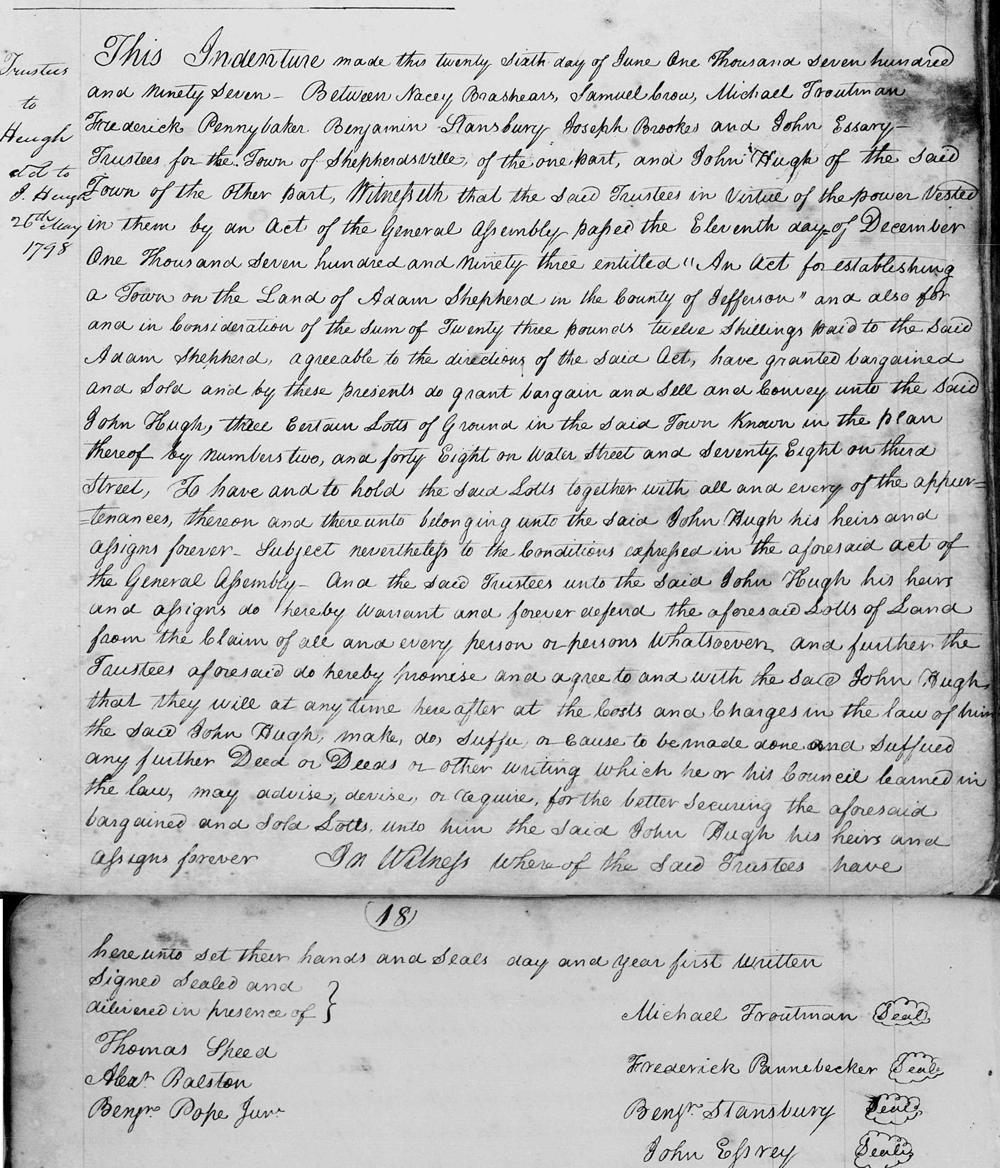 Trustees
to
Hough
del to
J. Hough
26th May
1798
This Indenture made this twenty sixth day of June One Thousand Seven hundred
and Ninety Seven - Between Nacey Brashears, Samuel Crow, Michael Troutman
Frederick Pennybaker Benjamin Stansbury Joseph Brookes and John Essary -
Trustees for the Town of Shepherdsville, of the one part, and John Hugh of the said
Town of the other part, Witnesseth that the said Trustees in Virtue of the power Vested
in them by an Act of the General Assembly passed the Eleventh day of December
One Thousand Seven hundred and Ninety three entitled "An Act for establishing
a Town on the Land of Adam Shepherd in the County of Jefferson" and also for
and in Consideration of the Sum of Twenty three pounds twelve Shillings paid to the said
Adam Shepherd, agreeable to the directions of the said Act, have granted bargained
and Sold and by these presents do grant bargain and Sell and Convey unto the said
John Hugh, three Certain Lotts of Ground in the said Town Known in the plan
thereof by numbers two, and forty Eight on Water Street and Seventy Eight on third
Street, To have and to hold the said Lotts together with all and every of the appur=
=tenances, thereon and thereunto belonging unto the said John Hugh his heirs and
assigns forever - Subject nevertheless to the Conditions expressed in the aforesaid act of
the General Assembly - And the said Trustees unto the said John Hugh his heirs
and assigns do hereby warrant and forever defend the aforesaid Lotts of Land
from the Claim of all and every person or persons Whatsoever, and further the
Trustees aforesaid do hereby promise and agree to and with the said John Hugh,
that they will at any time here after at the Costs and Charges in the law of him
the said John Hugh, make, do, suffer, or Cause to be made done and suffered
any further Deed or Deeds or other writing which he or his Council learned in
the law, may advise, devise, or require, for the better securing the aforesaid
bargained and Sold Lotts, unto him the said John Hugh his heirs and
assigns forever In Witness where of the said Trustees have
18
here unto set their hands and Seals day and year first written
Signed Sealed and
delivered in presence of }
Michael Troutman Seal
Thomas Speed
Frederick Pannebecker Seal
Alexr. Ralston
Benjn. Pope Junr.
Benjn. Stansbury Seal
John Essrey Seal